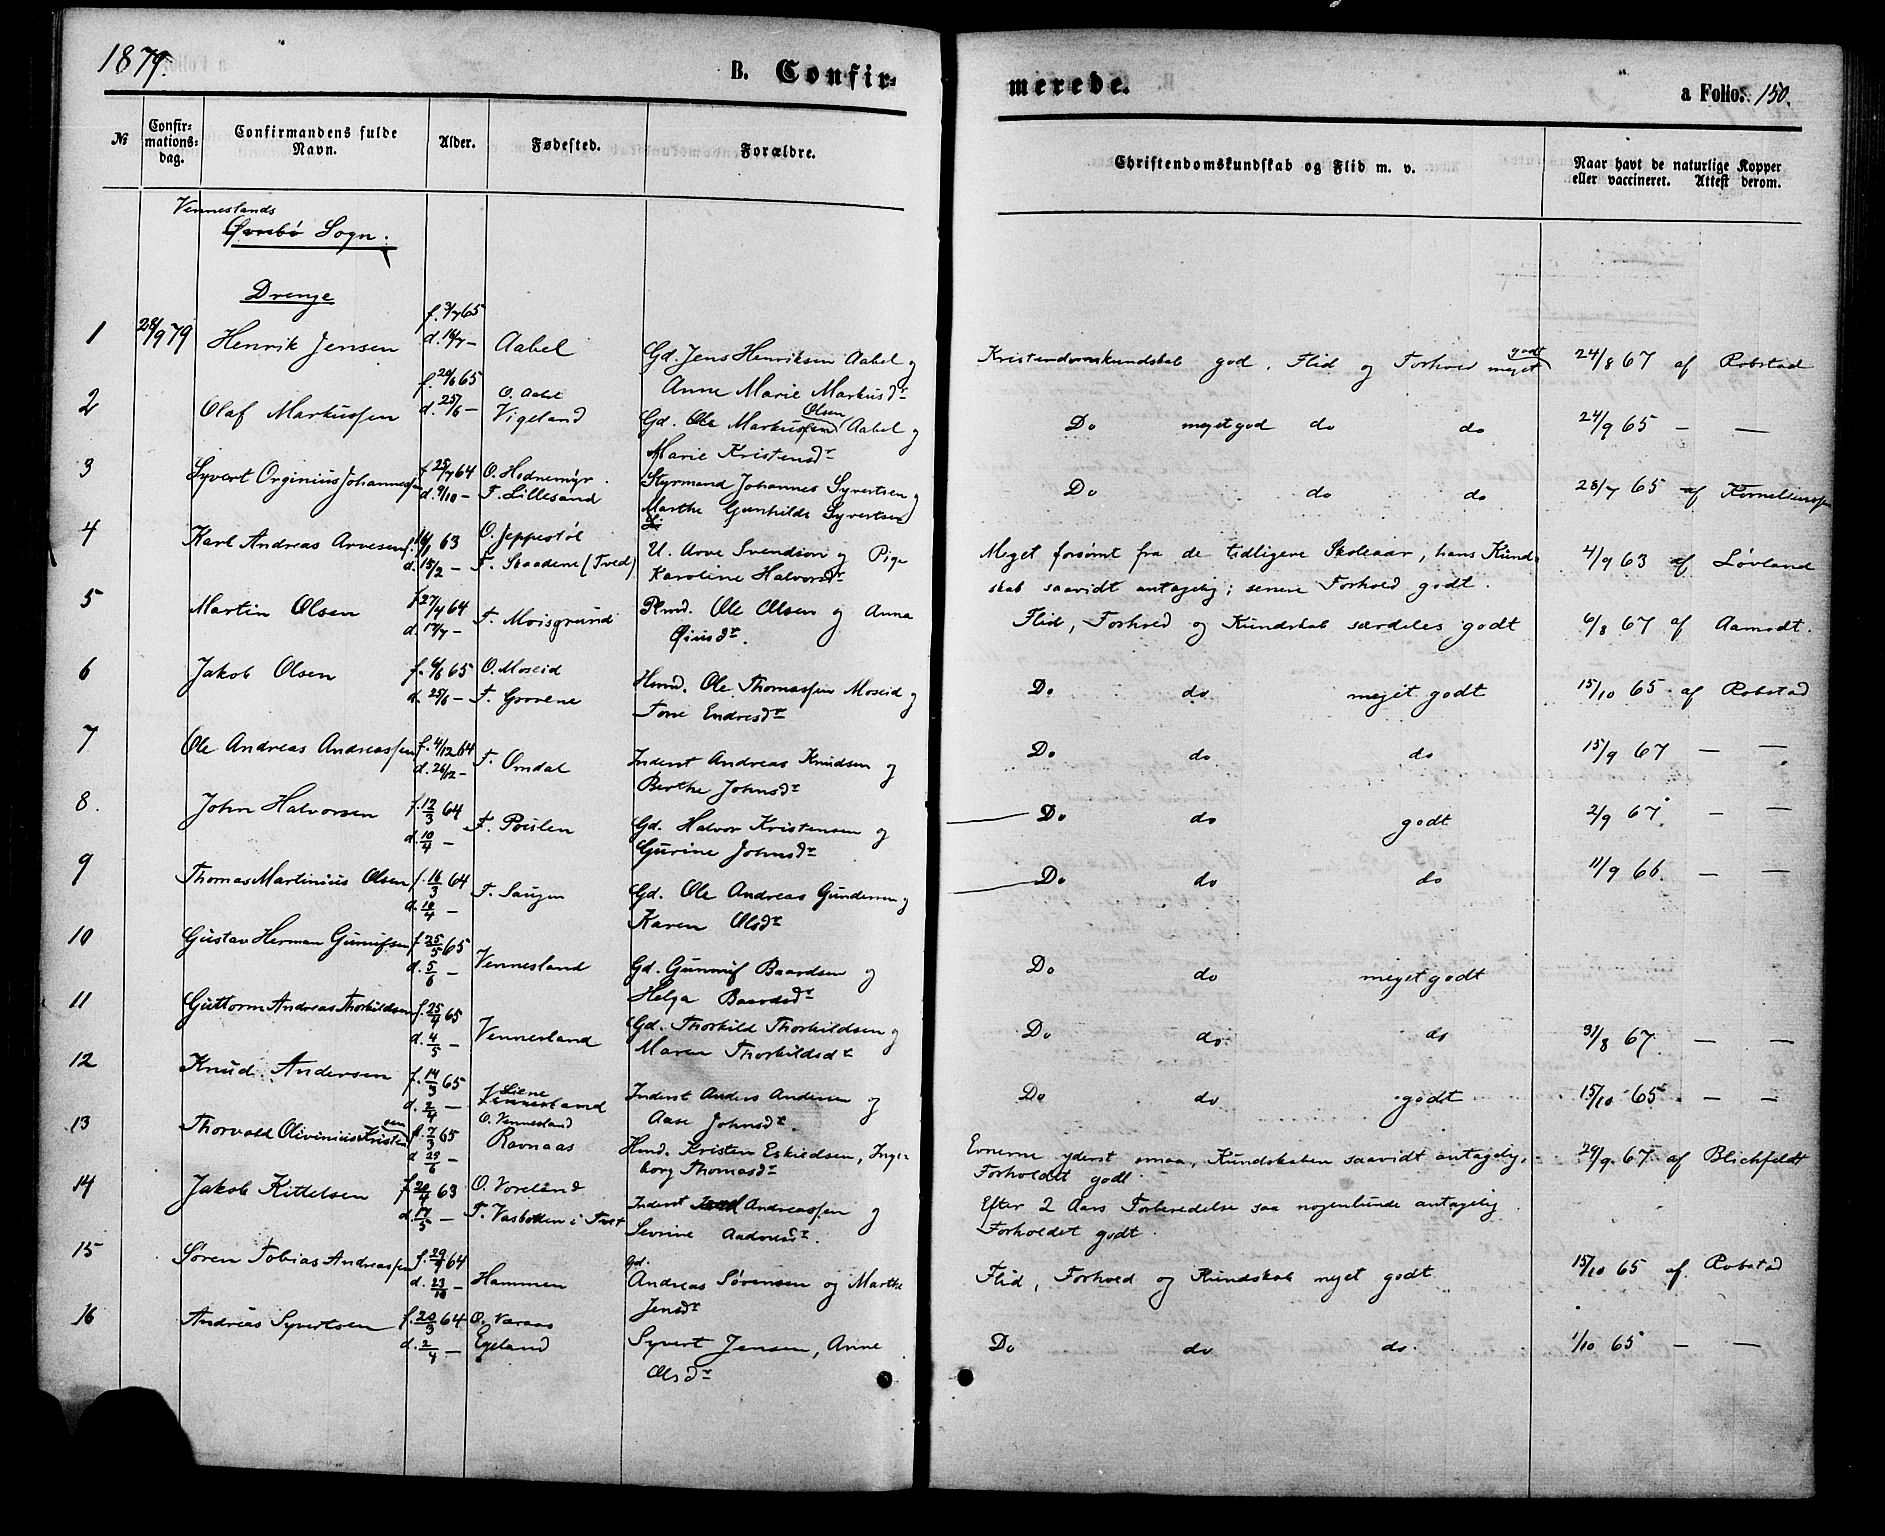 1879.
B. Confir-
merede.
a Folio: 150.
№
Confir-
mations-
dag.
Confirmandens fulde
Navn.
Alder.
Fødested.
Forældre.
Christendomskundskab og Flid m. v.
Naar havt de naturlige Kopper
eller vaccineret. Attest derom.
Venneslands
Øvrebø Sogn.
Drenge
1 28/9 79 Henrik Jensen f. 3/7 65 d. 16/7 – Aabel Gd. Jens Henriksen Aabel og
Anne Marie Markusdr
Kristendomskundskab god, Flid og Forhold meget godt 24/8 67 af Robstad
2 Olaf Markussen f. 20/6 65 d. 25/6 – O. Aabel
Vigeland Gd. Ole Markussen Olsen Aabel og
Marie Kristensdr
Do meget god do do 24/9 65 – –
3 Syvert Orginius Johannessen f. 25/7 64 d. 9/10 – O. Hednemyr.
F. Lillesand Styrmand Johannes Syvertsen og
Marthe Gunhilde Syvertsen
Do do do 28/7 65 af Korneliussen
4 Karl Andreas Arvesen 63 d. 15/2 – O. Jeppestøl
F. Skaadene (Tved) U. Arve Svendsen og Pige
Karoline Halvorsdr
Meget forsømt fra de tidligere Skoleaar, hans Kund-
skab saavidt antagelig; senere Forhold godt. 4/9 63 af Løvland
5 Martin Olsen f. 27/4 64 d. 17/7 – F. Moisgrund Plmd. Ole Olsen og Anna

Flid, Forhold og Kundskab særdeles godt 6/8 67 af Aamodt.
6 Jakob Olsen f. 6/6 65 d. 25/6 – O. Moseid
F. Grovene Hmd. Ole Thomassen Moseid og
Tone Endresdr
Do do meget godt 15/10 65 af Robstad
7 Ole Andreas Andreassen f. 4/12 64 d. 26/12 – F. Omdal Inderst Andreas Knudsen og
Berthe Johnsdr
Do do do 15/9 67 – –
8. John Halvorsen f. 12/3 64 d. 10/4 – F. Poulen Gd. Halvor Kristensen og
Gurine Johnsdr
Do do godt 2/9 67. – –
9 Thomas Martinius Olsen f. 16/3 64 d. 10/4 – F. Saugen Gd. Ole Andreas Gundersen og
Karen Olsdr
Do do do 11/9 66. – –
10 Gustav Herman Gunnufsen f. 25/5 65 d. 5/6 – Vennesland Gd. Gunnuf Baardsen og
Helga Baardsdr
Do do meget godt
11 Guttorm Andreas Thorkildsen f. 25/4 65 d. 4/5 – Vennesland Gd. Thorkild Thorkildsen og
Maren Thorkildsdr
Do do do 31/8 67. – –
12 Knud Andersen f. 14/3 65 d. 2/4 – Liene
Vennesland Inderst Anders Andersen og
Aase Johnsdr.
Do do godt 15/10 65 – –
13 Thorvald Olivinius Kristensen f. 7/3 65 d. 25/6 – O. Vennesland
Ravnaas Hmd. Kristen Eskildsen, Inge-
borg Thomasdr
Evnerne yderst smaa, Kundskaben saavidt antagelig,
Forholdet godt. 29/9. 67 af Blichfeldt
14 Jakob Kittelsen f. 20/4 63 d. 17/5 – O. Voreland
F. Vasbotten i Tvet Inderst Andreassen og
Sevrine Aadnesdr.
Efter 2 Aars Forberedelse saa nogenlunde antagelig.
Forholdet godt.
15 Søren Tobias Andreassen f. 29/9 64 d. 23/10 – Hammen Gd.
Andreas Sørensen og Marthe
Jensdr
Flid, Forhold og Kundskab meget godt 15/10 65 af Robstad
16 Andreas Syvertsen f. 20/3 64 d. 2/4 – O. Varaas
Egeland Syvert Jensen, Anne
Olsdr
Do do do. 1/10 65 – –